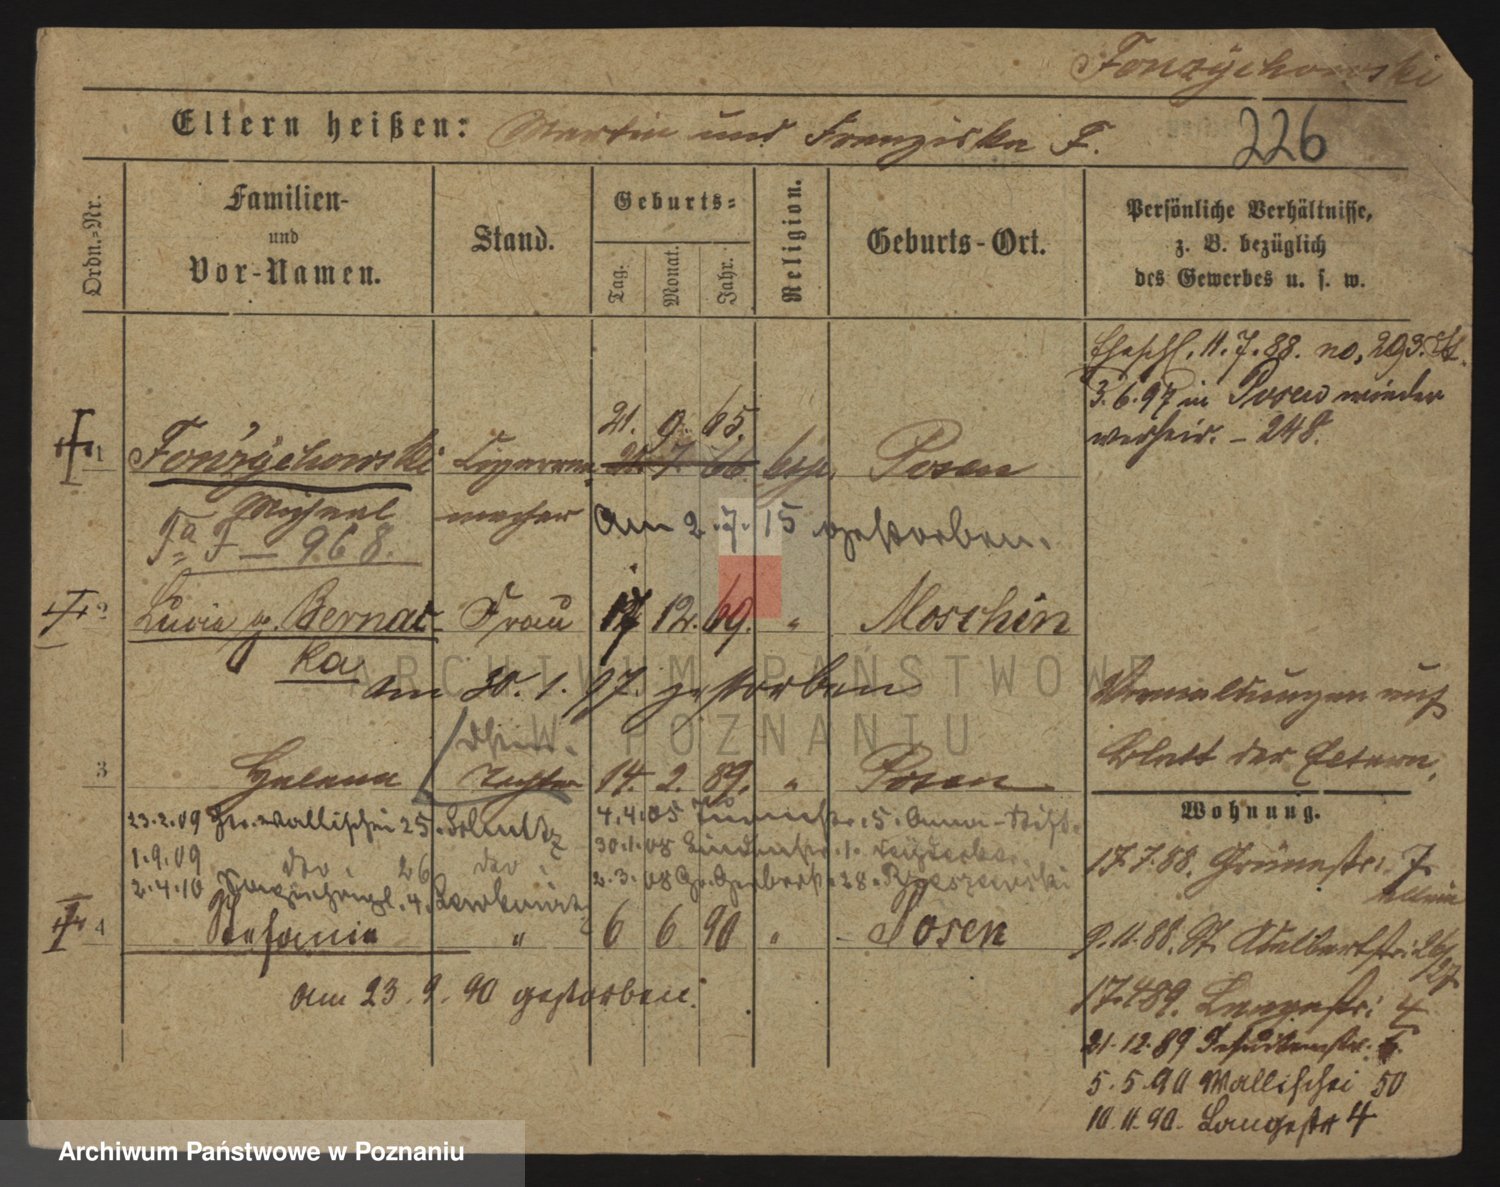 Fonrychowski
Eltern heißen: Martin und Franziska F.
226
Ordn.-Nr.
Familien-
und
Vor-Namen.
Stand.
Geburts-
Tag.
Monat.
Jahr.
Religion.
Geburts-Ort.
Persönliche Verhältnisse,
z. B. bezüglich
des Gewerbes u. s. w.
Eheschl. 11.7.88. no. 293.
3.6.97 in Posen wieder
verheir. – 248.
21. 9. 65.
1 Fonrychowski Cigarren- 7. 66. Posen
Michael macher am 2.7.15 gestorben.
F – 968.
2 Lucia g. Bernac- Frau 17 12. 69. " Moschin
ka
am 30.1.97. gestorben
ARCHIWUM PAŃSTWOWE
W POZNANIU
3 Helena Tochter 14. 2. 89. " Posen
Bemerkungen auf
Blatt der Eltern.
Wohnung.
23.2.09 Wallischei 25. 4.4.05 5. Anna-Stift.
1.9.09 do. 26 do. 30.1.08 1.
2.4.10 4. 2.3.08 Gr. Gerberstr. 28.
4 Stefania " 6 6 90 " Posen
am 23.9.90 gestorben.
17.7.88. Grünestr. 7
9.11.88. St. Adalbertstr. 26/27
17.4.89. Langestr. 4
21.12.89 Jesuitenstr.
5.5.90 Wallischei 50
10.11.90. Langestr 4
Archiwum Państwowe w Poznaniu